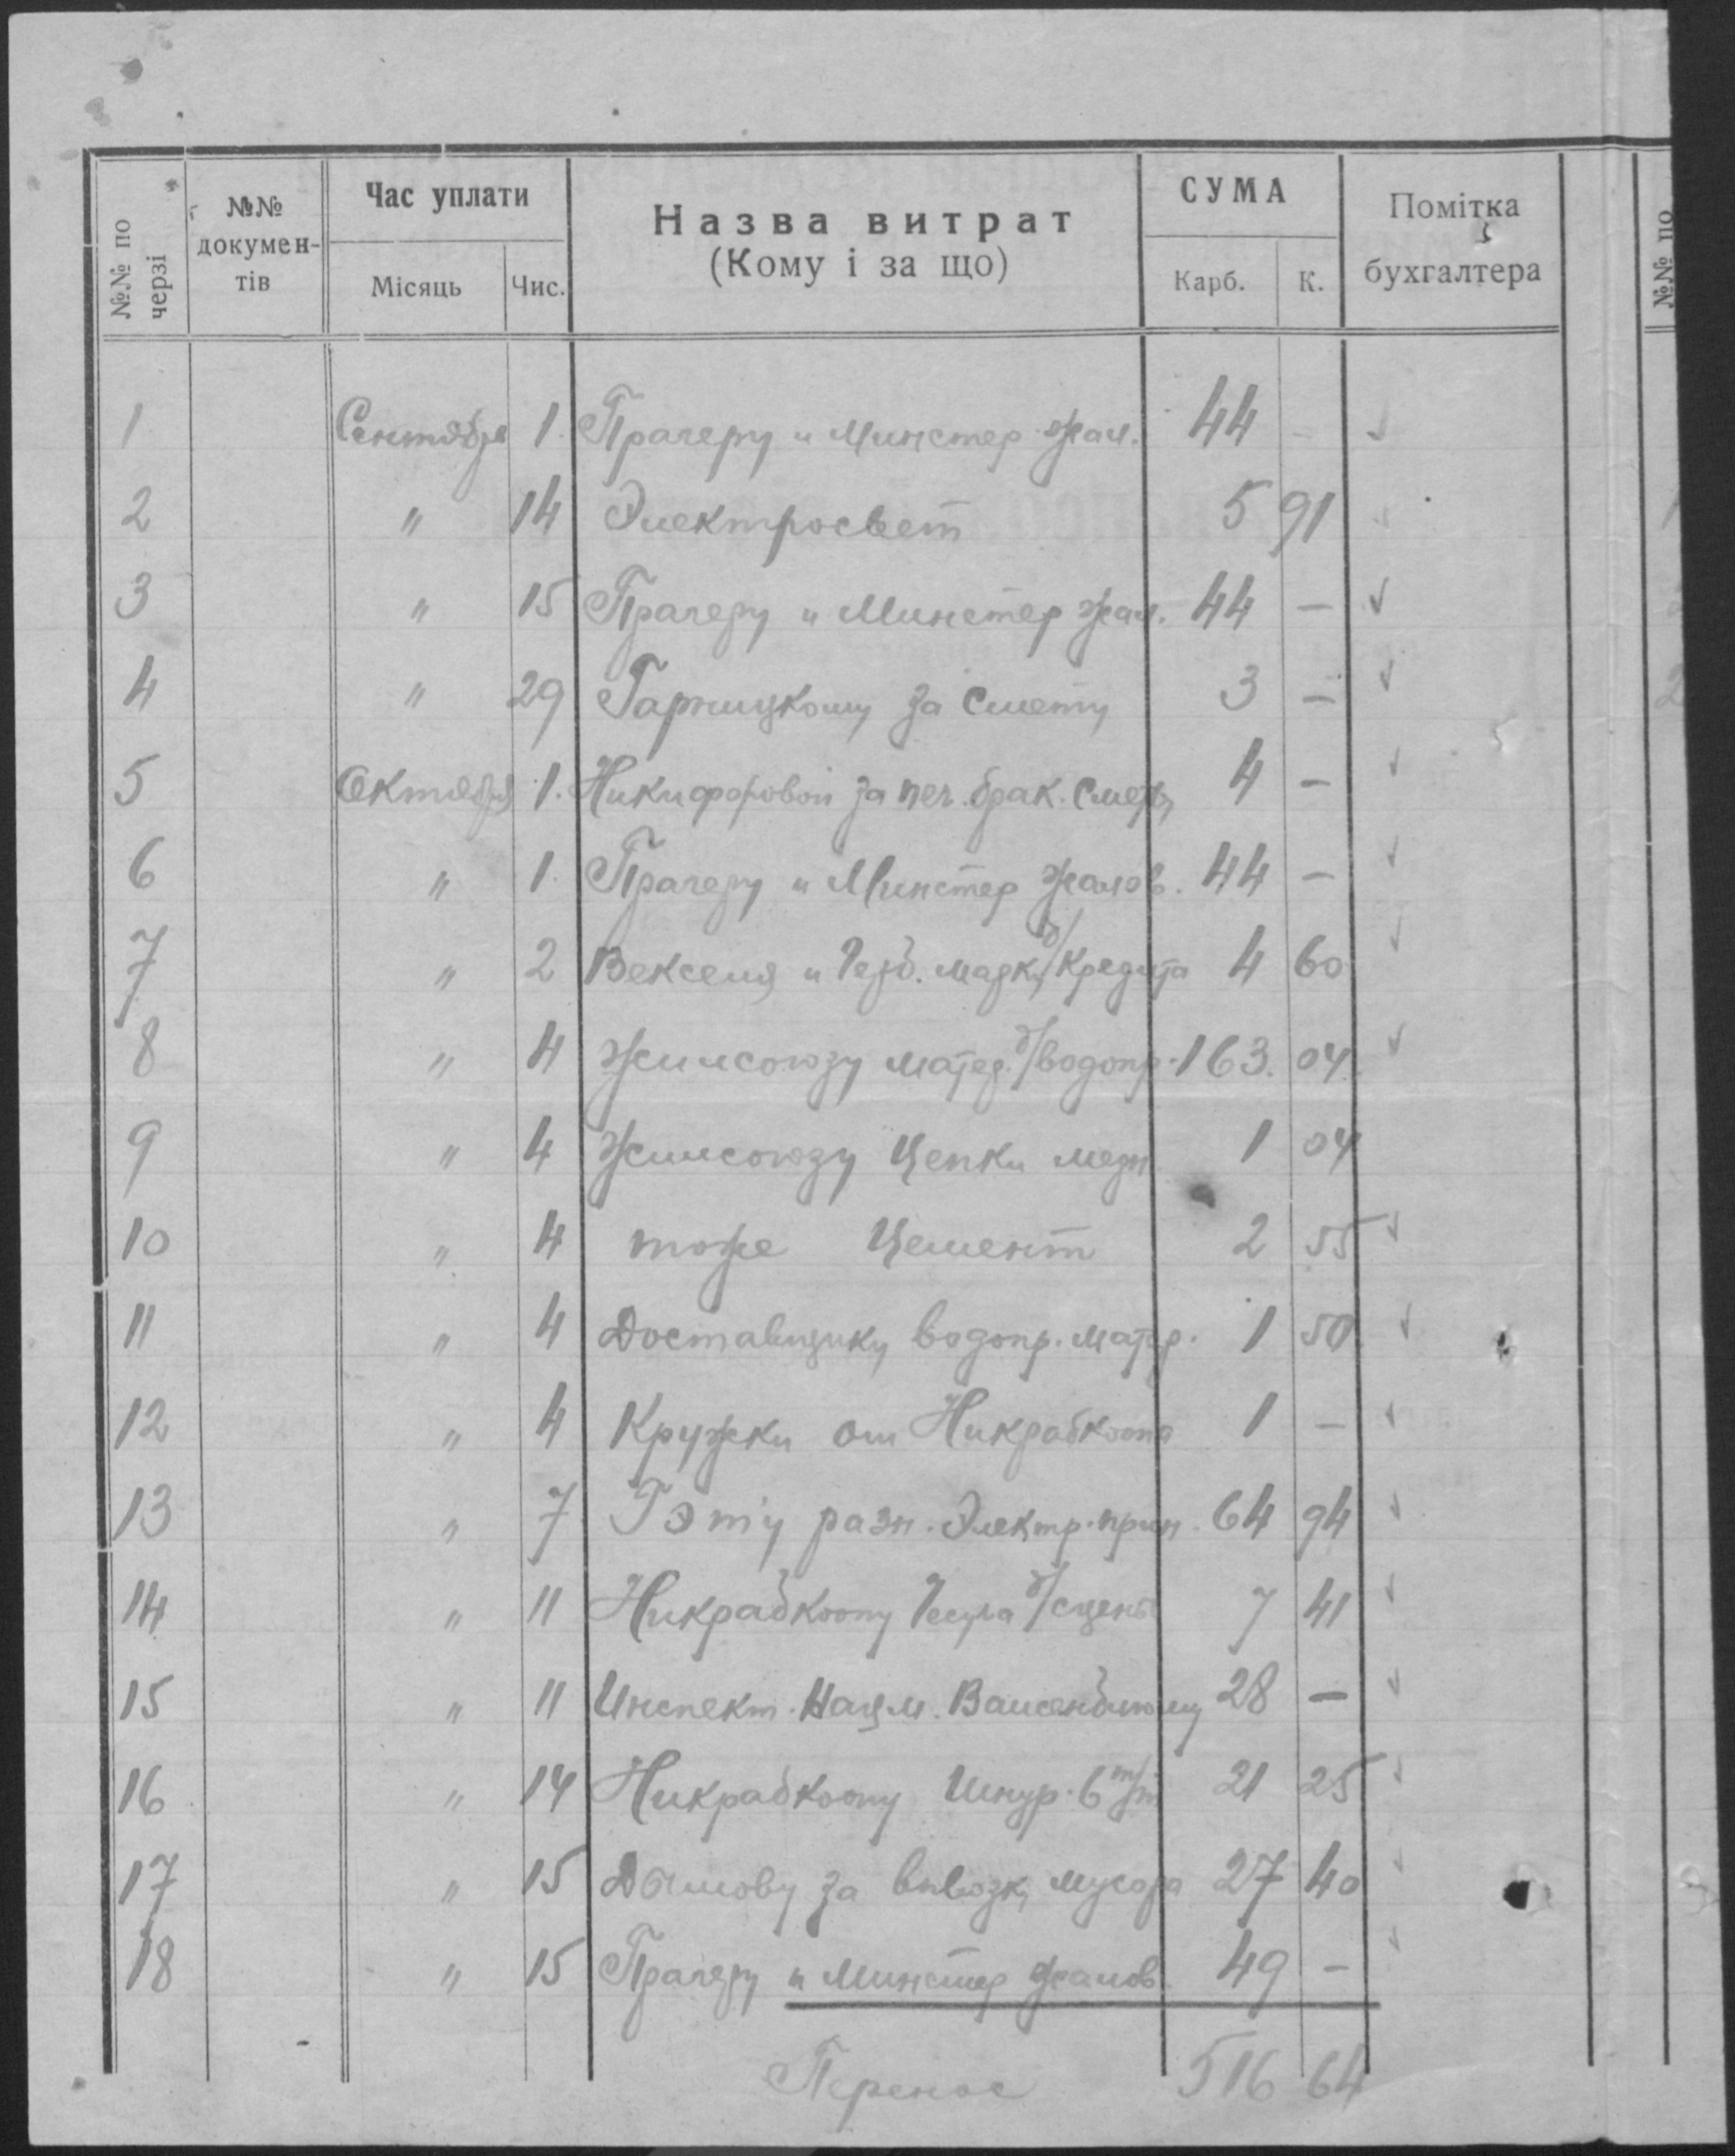 №№ по черзі
№№ документів
Час уплати
Місяць
Чис.
Назва витрат
(Кому і за що)
СУМА
Карб.
К.
Помітка бухгалтера
№№ по
1 Сентября 1. Прагеру и Минстер жал. 44 –
2 " 14 Электросвет 5 91
3 " 15 Прагеру и Минстер жал. 44 –
4 " 29 за смету 3 –
5 Октября 1. Никифоровой за печ. брак. 4 –
6 " 1. Прагеру и Минстер жалов. 44 –
7 " 2 Векселя и герб. марки д/кредита 4 60
8 " 4 Жилсоюзу матер. д/водопр. 163. 04
9 " 4 Жилсоюзу Цепки медн. 1 04
10 " 4 тоже Цемент 2 55
11 " 4 Доставщику водопр. матер. 1 50
12 " 4 Кружки от Никрабкоопа 1 –
13 " 7 Гэту разн. Электр. прин. 64 94
14 " 11 Никрабкоопу д/сцены 7 41
15 " 11 Инспект. Нацм. 28 –
16 " 14 Никрабкоопу Шнур. 21 25
17 " 15 за вывозк, мусора 27 40
18 " 15 Прагеру и Минстер жалов. 49 –
Перенос 516 64